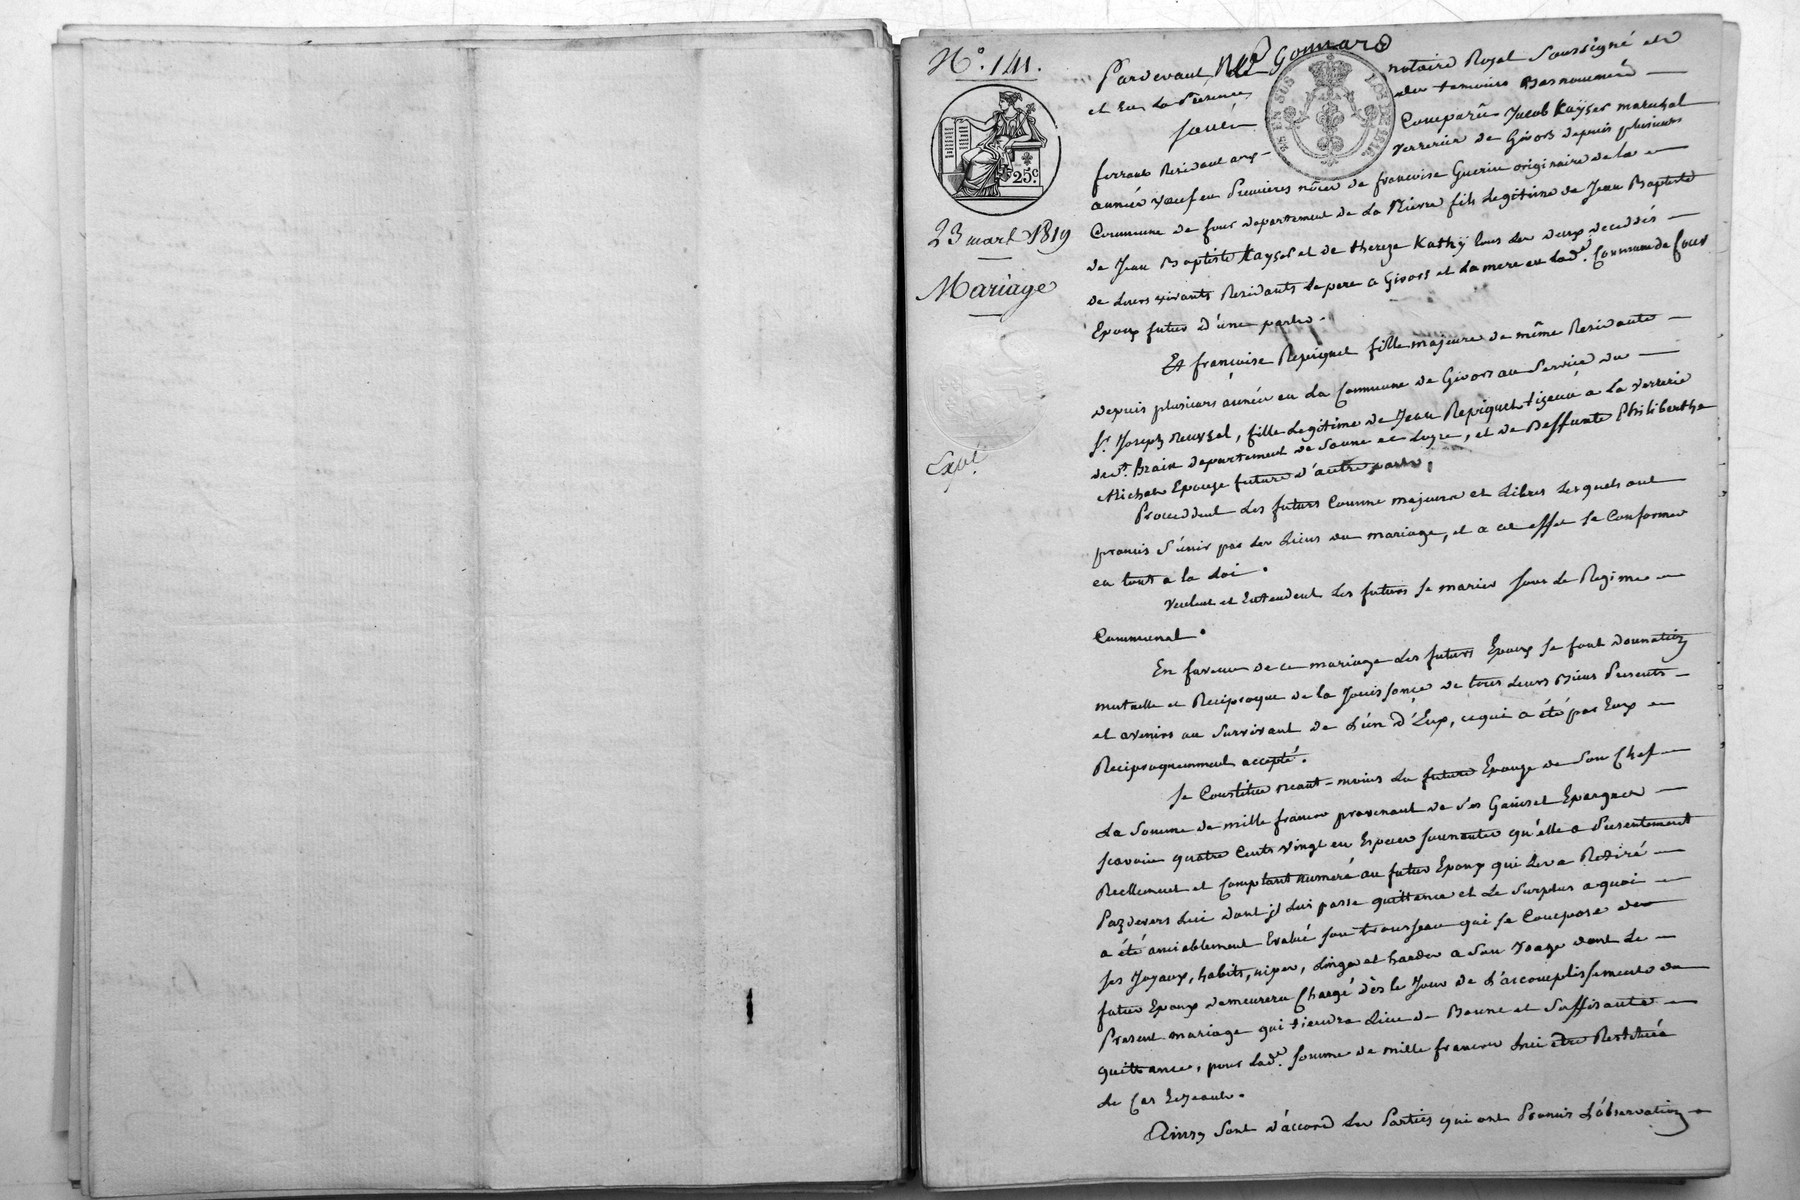 N.° 141.
25.c
23 mars 1819
Mariage
Exp.é
Pardevant Me Gonnard notaire Royal Soussigné et
et En La Presence des temoins Bas nommés
furent Comparû Jacob Kayser marechal
ferrant Residant aux verrerie de Givors depuis plusieurs
année veuf en Premieres nôces de françoise Guerin originaire de la
Commune de four departement de La Nievre fils Legitime de Jean Baptiste
de Jean Baptiste Kayser et de thereze Kathÿ tous Les deux decedés
de Leurs vivants Residants Le pere a Givors et La mere en Lad.e Commune de Cour
Epoux futur d'une partie.
Et françoise Repiquet fille majeure de même Residante
depuis plusieurs année en La Commune de Givors au Service du
S.r Joseph neuvzel, fille Legitime de Jean Repiquet tizeur a La verrerie
de S.t Brain departement de Saone et Loire, et de Deffunte Philiberthe
Michon Epouze future d'autre part,
Proceddent Les futurs Comme majeurs et Libres Lesquels ont
promis S'unir par Les Liens du mariage, et a cet effet se Conformer
en tout a la Loi.
Veulent et Entendent Les futurs se marier sous Le Regime
Communal.
En faveur de ce mariage Les futurs Epoux se font donnation
mutuelle et Reciproque de la Jouissance de tous Leurs Biens Presents
et avenirs au Survivant de L'un d'Eux, ce qui a été par Eux
Reciproquement accepté.
Se Constitue neant-moins La future Epouze de Son Chef
La Somme de mille francs provenant de Ses Gains et Epargnes
scavoir quatre Cents vingt en Especes sonnantes qu'elle a Presentement
Reellement et Comptant numeré au futur Epoux qui Les a Retiré
Pardevers Lui dont il Lui passe quittance et Le Surplus a quoi
a été amiablement Evalué son trousseau qui se Compose de
ses Joyaux, habits, nipes, Linge et hardes a Son usage dont Le
futur Epoux demeurera Chargé dès le Jour de L'accomplissement du
Present mariage qui tiendra Lieu de Bonne et Suffisante
quittance, pour Lad.e somme de mille francs Lui être Restituée
Le Cas Echeant.
Ainsy Sont d'accord Les Parties qui ont Promis L'observation